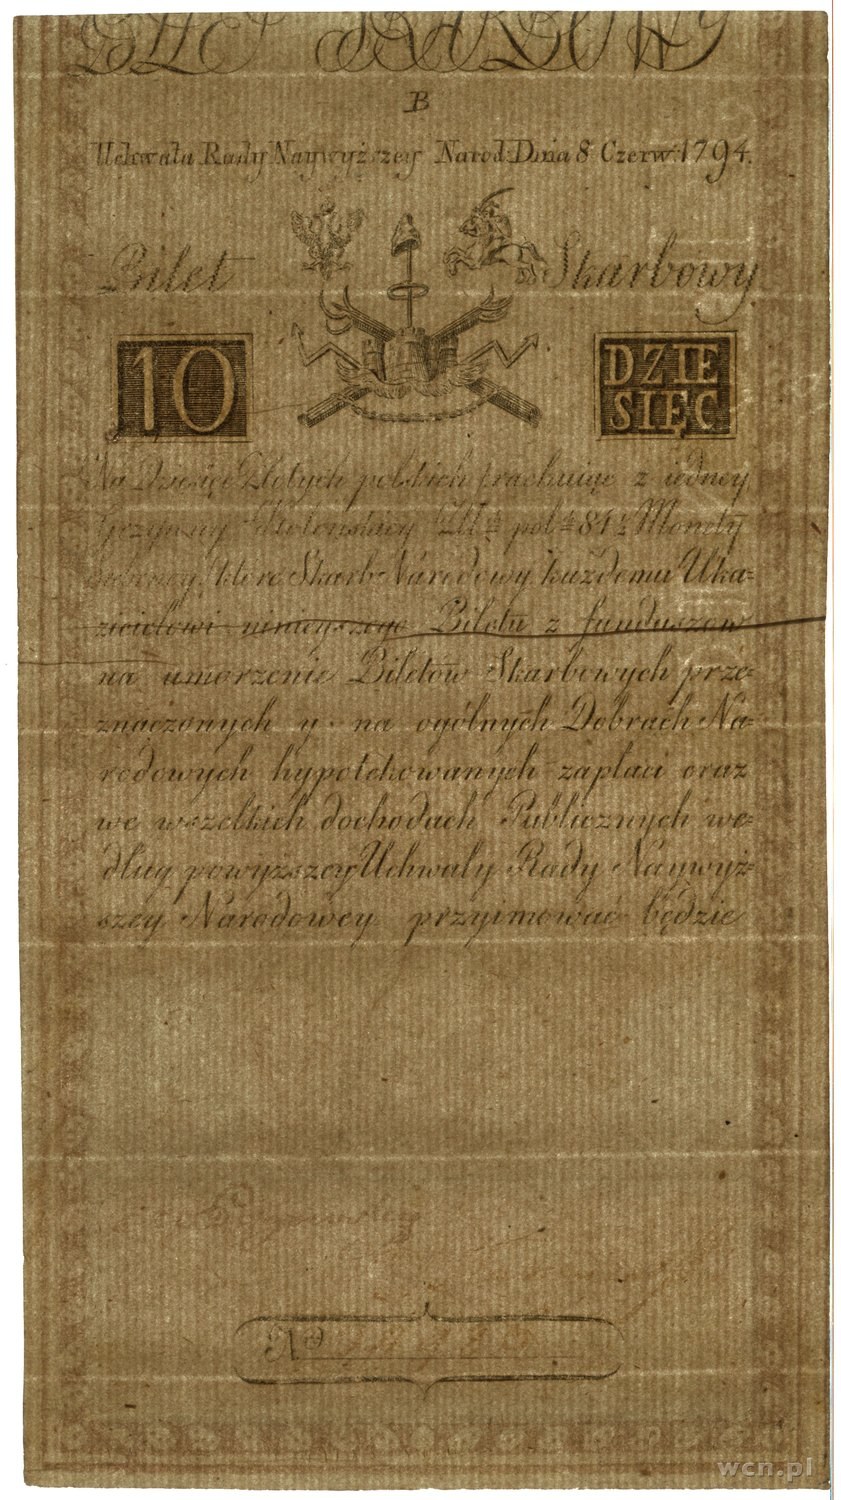 B
Uchwała Rady Naywyższey Narod: Dnia 8 Czerw: 1794.
Bilet Skarbowy
10
DZIE
SIĘC
Na Dziesięć Złotych polskich rachuiąc z iedney
Grzywny Kolońskiey Zł: pol: 84½ Monety
srebrney, które Skarb Narodowy każdemu Uka=
zicielowi ninieyszego Biletu z funduszow
na umorzenie Biletów Skarbowych prze=
znaczonych y na ogólnych Dobrach Na=
rodowych hypotekowanych zapłaci oraz
we wszelkich dochodach Publicznych we=
dług powyższey Uchwały Rady Naywyż=
szey Narodowey przyimować będzie
No
wcn.pl